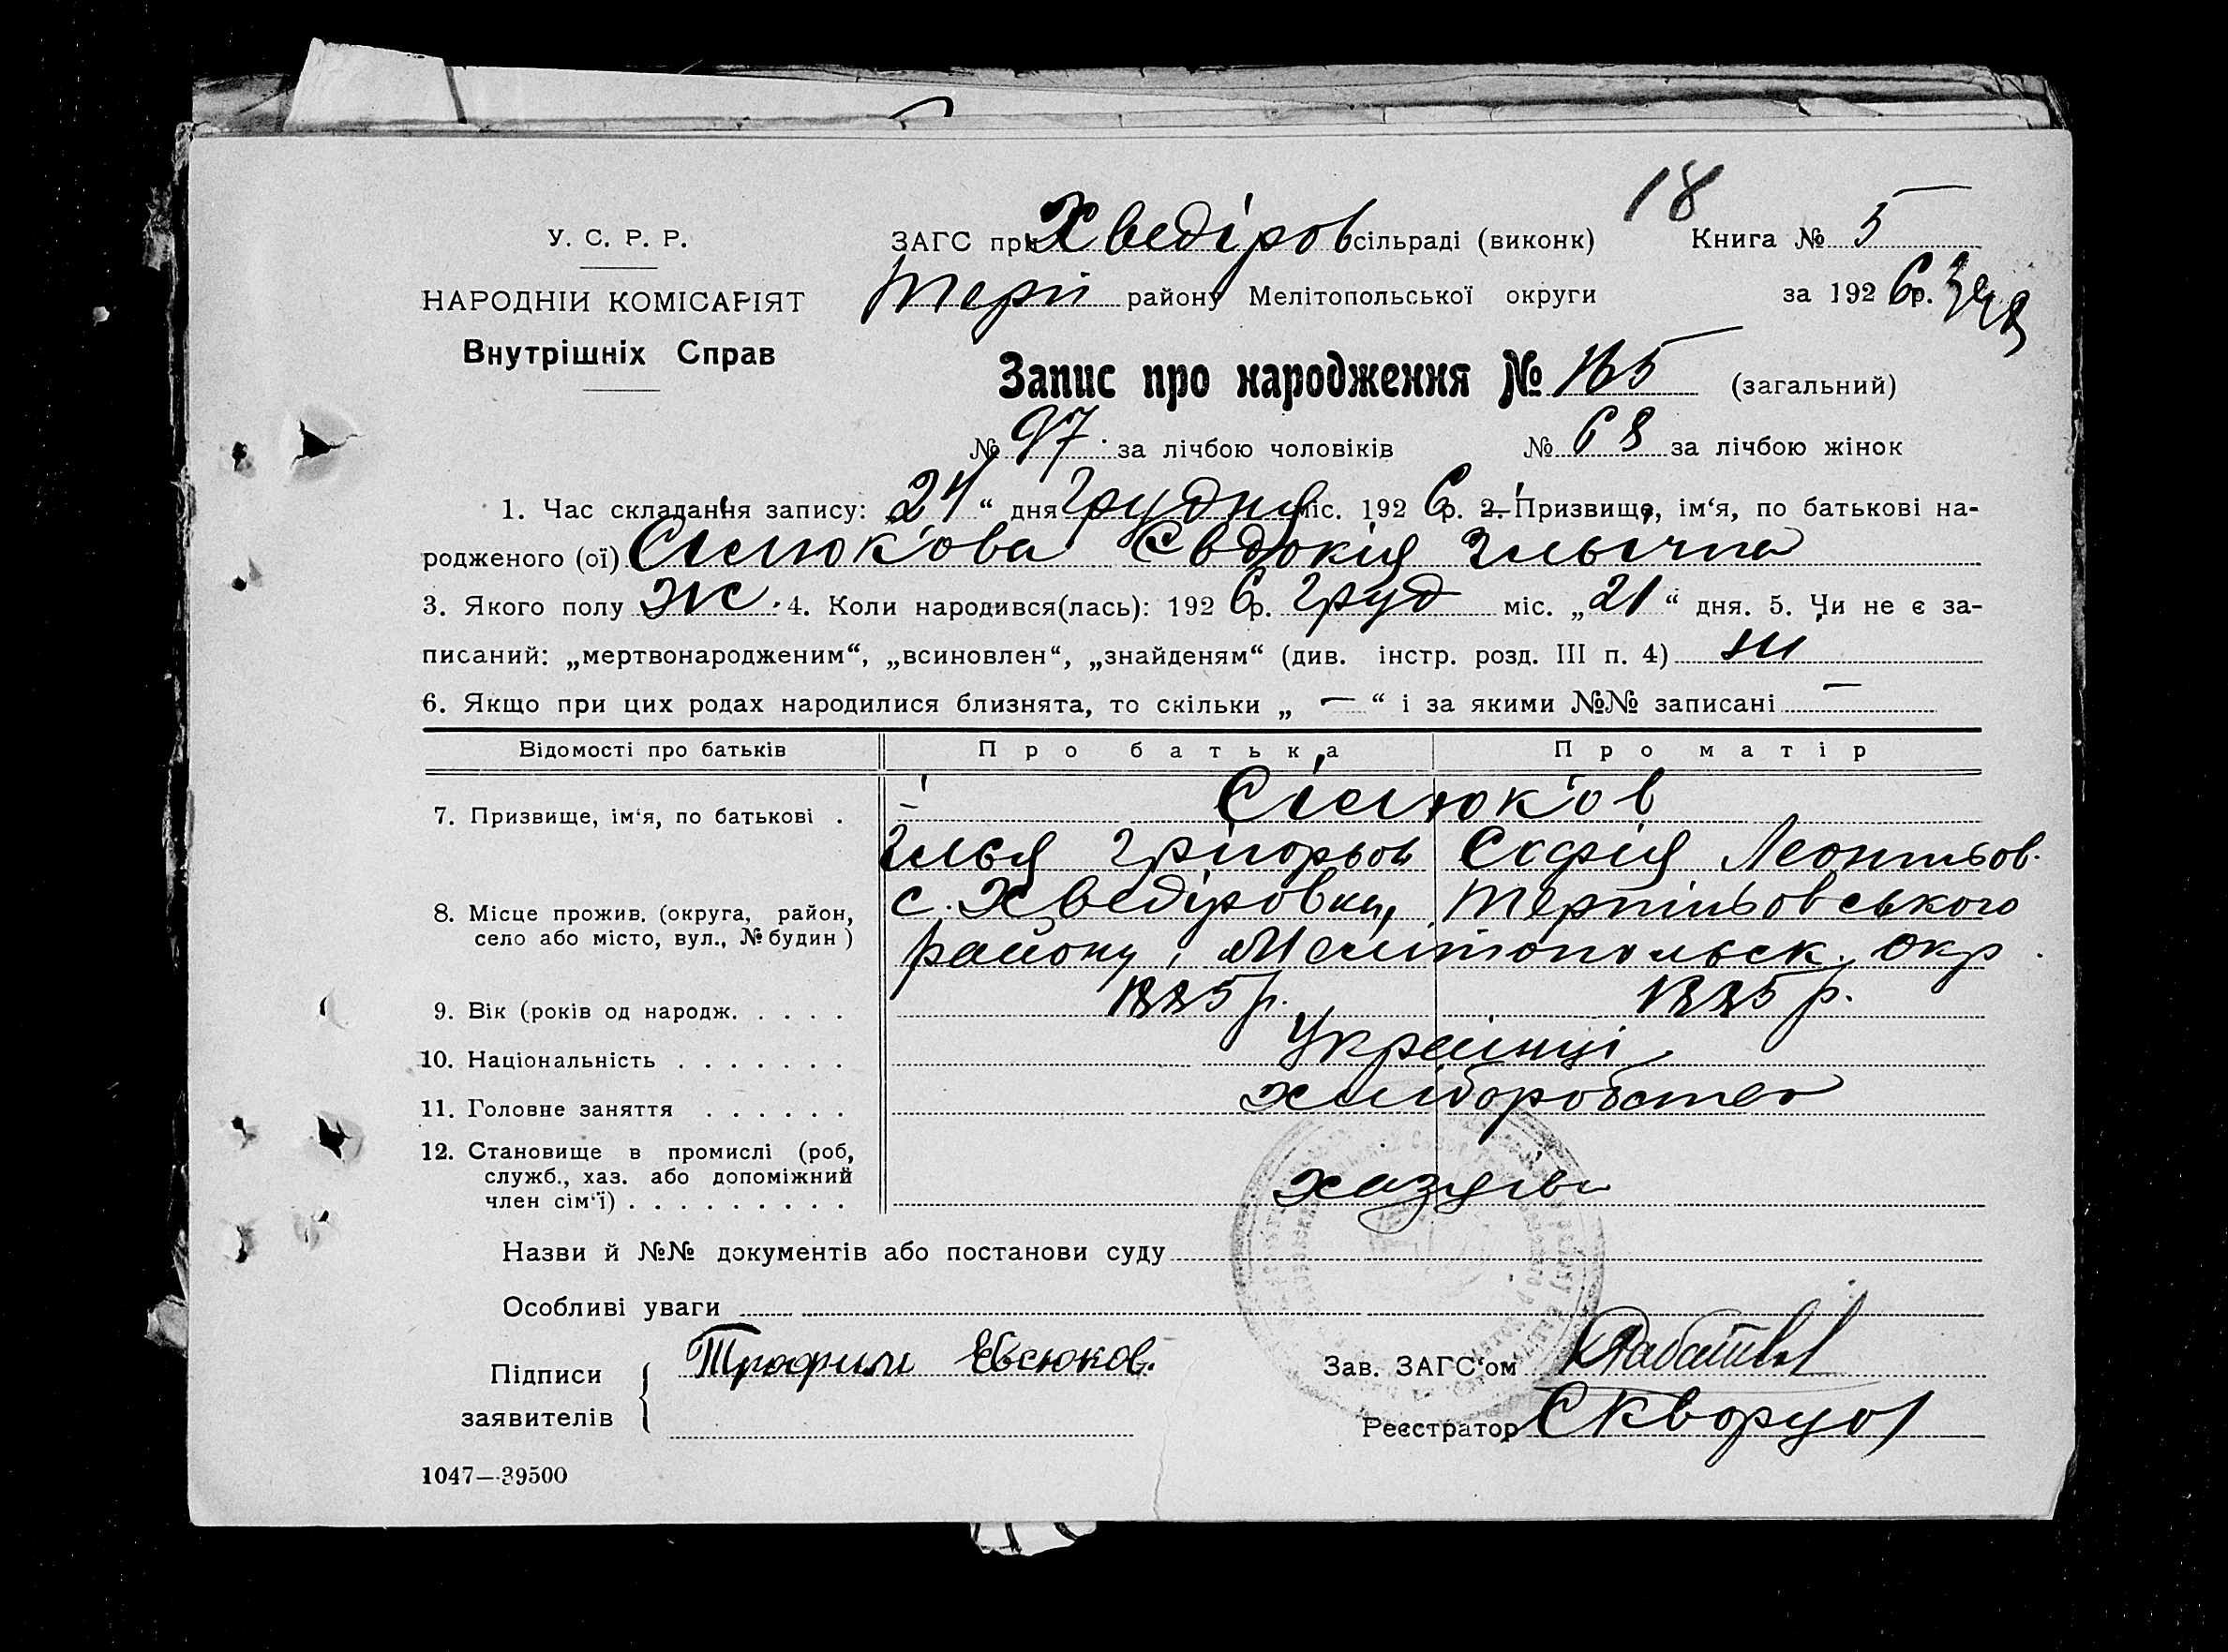 18
У. С. Р. Р.
ЗАГС при Хведіров сільраді (виконк) Книга № 5
НАРОДНІЙ КОМІСАРІЯТ
Терп району Мелітопольської округи за 1926 р.
Внутрішніх Справ
Запис про народження № 165 (загальний)
№ 97 за лічбою чоловіків № 68 за лічбою жінок
1. Час складання запису: 24 “ дня Грудня міс. 1926 р. 2. Призвище, ім‘я, по батькові на-
родженого (ої) Сіслюкова Євдокія Ільична
3. Якого полу Ж. 4. Коли народився(лась): 1926 р. Груд міс. „21“ дня. 5. Чи не є за-
писаний: „мертвонародженим“, „всиновлен“, „знайденям“ (див. інстр. розд. III п. 4) ні
6. Якщо при цих родах народилися близнята, то скільки „ — “ і за якими №№ записані —
Відомості про батьків Про батька Про матір
7. Призвище, ім‘я, по батькові . Сіслюков
Ілья Грігорьов Софія Леонтьов.
8. Місце прожив. (округа, район, село або місто, вул., № будин ) с. Хведіровка, Терпіньовського
району, Мелітопольськ. окр
9. Вік (років од народж. . . . . 1885 р. 1885 р.
10. Національність . . . . . . . Українці
11. Головне заняття . . . . . . хліборобство
12. Становище в промислі (роб,
служб., хаз. або допоміжний
член сім‘ї) . . . . . . . . . хазяїви
Назви й №№ документів або постанови суду
Особливі уваги
Підписи Трофим Євсюков. Зав. ЗАГС‘ом
заявителів Реєстратор Скворцов
1047—39500